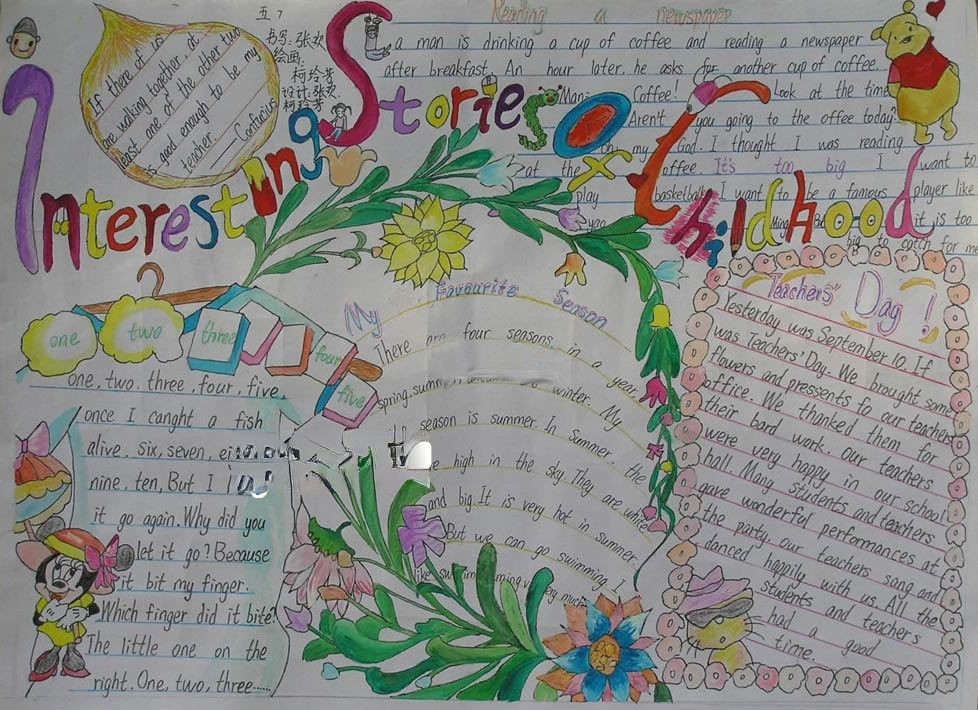 五7
书写:张欢
绘画:
柯玲芳
设计:张欢
柯玲芳
Interesting Stories Of Childhood
If there of us
are walking together, at
least one of the other two
is good enough to be my
teacher.
——Confucius
Reading a newspaper
a man is drinking a cup of coffee and reading a newspaper
after breakfast. An hour later, he asks for another cup of coffee.
Coffee! Look at the time
Aren't you going to the offee today?
my God. I thought I was reading
at the offee. It's too big I want to
play basketball. I want to be a famous player like
yao Ming. But it is too
big to catch for me
one two three four five
one, two, three, four, five,
once I caught a fish
alive. Six, seven,
nine, ten, But I
it go again. Why did you
let it go? Because
it bit my finger.
Which finger did it bite?
The little one on the
right. One, two, three......
My Favourite Season
There are four seasons in a year,
spring, winter. My
season is summer. In Summer the
high in the sky. They are white
and big. It is very hot in summer.
But we can go swimming. I
like swimming very much
Teachers' Day!
Yesterday was September 10. If
was Teachers' Day. We brought some
flowers and pressents fo our teachers
office. We thanked them for
their bard work. our teachers
were very happy in our school
hall. Mang students and teachers
gave wonderful performances at
the party, our teachers sang and
danced happily with us. All the
students and teachers
had a good
time.